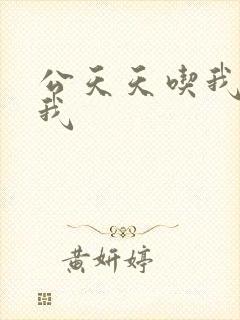 公天天喫我
我
黄妍婷